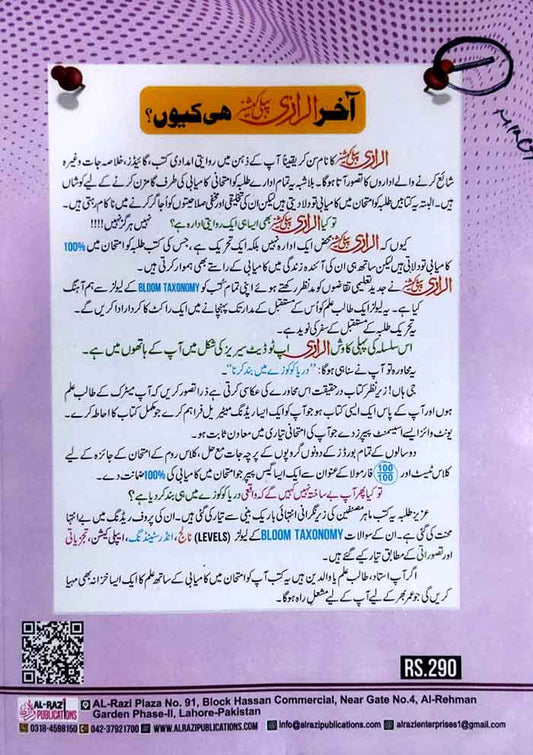 آخر الرازی پبلی کیشنز ھی کیوں؟
الرازی پبلی کیشنز کا نام سن کر یقیناً آپ کے ذہن میں روایتی امدادی کتب، گائیڈز، خلاصہ جات وغیرہ
شائع کرنے والے اداروں کا تصور آتا ہوگا۔ بلاشبہ یہ تمام ادارے طلبہ کو امتحانی کامیابی کی طرف گامزن کرنے کے لیے کوشاں
ہیں۔ البتہ یہ کتابیں طلبہ کو امتحان میں کامیابی تو دلا دیتی ہیں لیکن ان کی تخلیقی اور مخفی صلاحیتوں کو اُجاگر کرنے میں ناکام رہتی ہیں۔
تو کیا الرازی پبلی کیشنز بھی ایسا ہی ایک روایتی ادارہ ہے؟ نہیں ہرگز نہیں!!!!
کیوں کہ الرازی پبلی کیشنز محض ایک ادارہ نہیں بلکہ ایک تحریک ہے، جس کی کتب طلبہ کو امتحان میں 100%
کامیابی تو دلاتی ہیں لیکن ساتھ ہی ان کی آئندہ زندگی میں کامیابی کے راستے بھی ہموار کرتی ہیں۔
الرازی پبلی کیشنز نے جدید تعلیمی تقاضوں کو مدنظر رکھتے ہوئے اپنی تمام کتب کو BLOOM TAXONOMY کے لیولز سے ہم آہنگ
کیا ہے۔ یہ لیولز ایک طالب علم کو اُس کے مستقبل کے مدار تک پہنچانے میں ایک راکٹ کا کردار ادا کریں گے۔
یہ تحریک طلبہ کے مستقبل کے سفر کی نوید ہے۔
اس سلسلہ کی پہلی کاوش الرازی اپ ٹو ڈیٹ سیریز کی شکل میں آپ کے ہاتھوں میں ہے۔
یہ محاورہ تو آپ نے سنا ہی ہوگا: "دریا کو کوزے میں بند کرنا"۔
جی ہاں! زیر نظر کتاب درحقیقت اس محاورے کی عکاسی کرتی ہے ذرا تصور کریں کہ آپ میٹرک کے طالب علم
ہوں اور آپ کے پاس ایک ایسی کتاب ہو جو آپ کو ایک ایسا ریڈنگ میٹیریل فراہم کرے جو مکمل کتاب کا احاطہ کرے۔
یونٹ وائز ایسے اسیسمنٹ پیپرز دے جو آپ کی امتحانی تیاری میں معاون ثابت ہو۔
دو سالوں کے تمام بورڈز کے دونوں گروپوں کے پرچہ جات مع حل، کلاس روم کے امتحان کے جائزہ کے لیے
کلاس ٹیسٹ اور 100/100 فارمولا کے عنوان سے ایک ایسا گیس پیپر جو امتحان میں کامیابی کی 100% ضمانت دے۔
تو کیا پھر آپ بے ساختہ نہیں کہیں گے کہ واقعی دریا کو کوزے میں ہی بند کر دیا ہے؟
عزیز طلبہ یہ کتب ماہر مصنفین کی زیر نگرانی انتہائی باریک بینی سے تیار کی گئی ہیں۔ ان کی پروف ریڈنگ میں بے انتہا
محنت کی گئی ہے۔ ان کے سوالات BLOOM TAXONOMY کے لیولز (LEVELS) نالج، انڈرسٹینڈنگ، ایپلی کیشن، تجزیاتی
اور تصوراتی کے مطابق تیار کیے گئے ہیں۔
اگر آپ استاد، طالب علم یا والدین ہیں یہ کتب آپ کو امتحان میں کامیابی کے ساتھ علم کا ایک ایسا خزانہ بھی مہیا
کریں گی جو عمر بھر کے لیے آپ کے لیے مشعل راہ ہوگا۔
RS.290
AL-RAZI PUBLICATIONS
AL-Razi Plaza No. 91, Block Hassan Commercial, Near Gate No.4, Al-Rehman
Garden Phase-II, Lahore-Pakistan
0318-4598150 042-37921700 WWW.ALRAZIPUBLICATIONS.COM info@alrazipublications.com alrazienterprises1@gmail.com